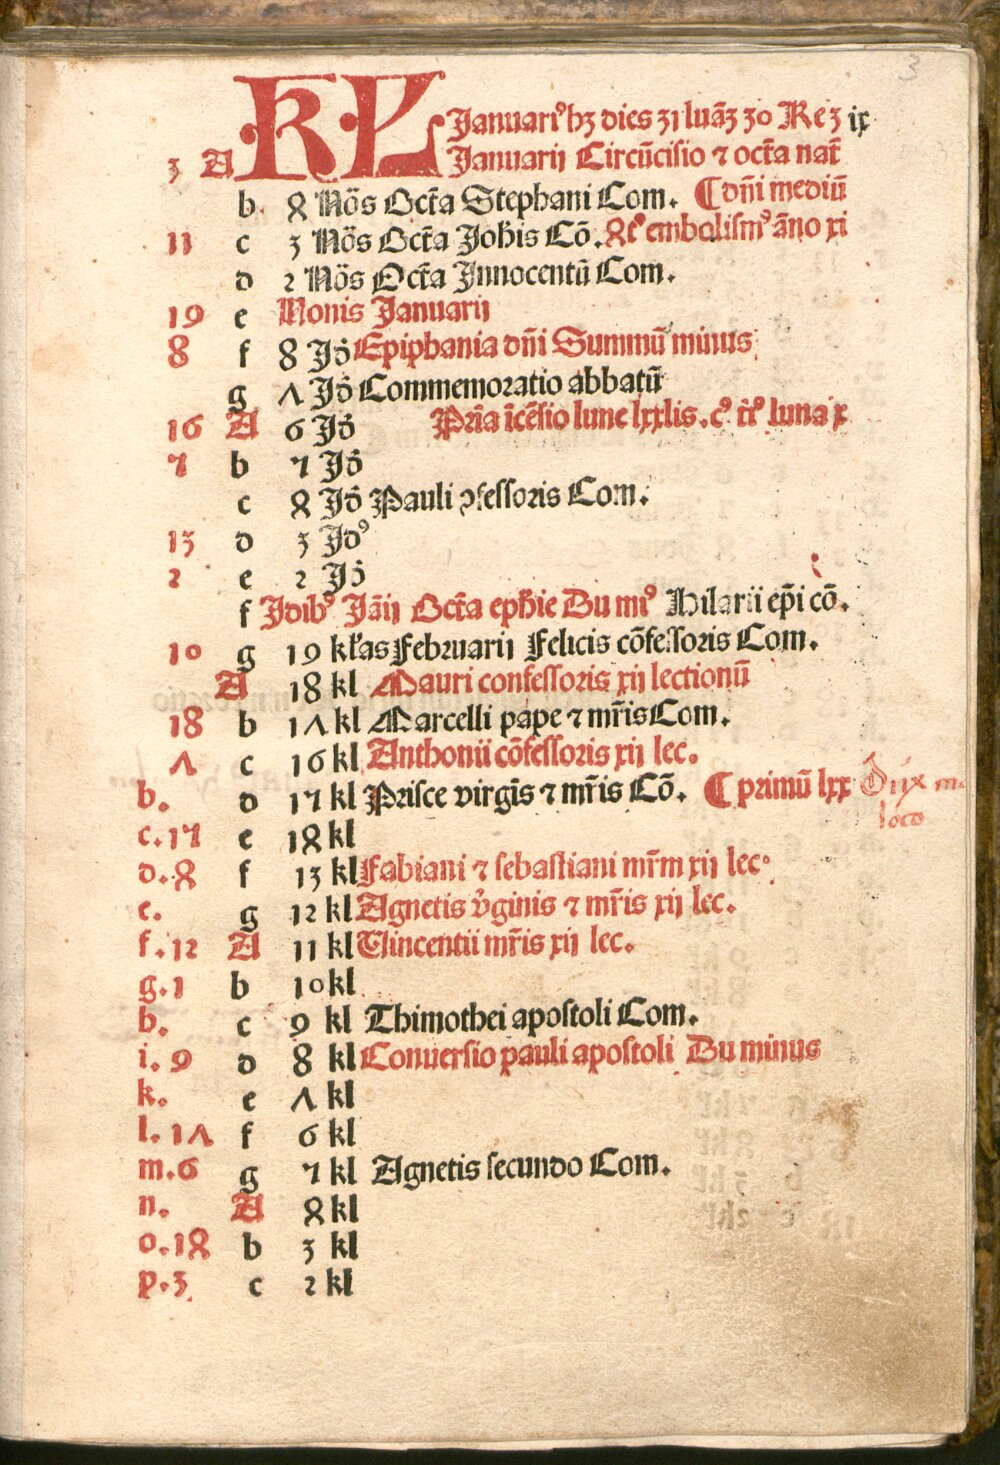 3
KL Januariꝰ hꝫ dies 31 luãꝫ 30 Re 3 ix
3 A Januarii Circũcisio ⁊ octa nat
b 8 Nõs Octa Stephani Com. ¶ dñi mediũ
11 c 3 Nõs Octa Johis Cõ. embolismꝰ ãno xi
d 2 Nõs Octa Innocentũ Com.
19 e Nonis Januarii
8 f 8 Jd Epiphania dñi Summũ minus
g Λ Jd Commemoratio abbatũ
16 A 6 Jd Prĩa luna x
7 b 7 Jd
c 8 Jd Pauli ꝯfessoris Com.
13 d 3 Jdꝰ
2 e 2 Jd
f Jdibꝰ Jãii Octa ephie Du miꝰ Hilarii epĩ cõ.
10 g 19 klas Februarii Felicis cõfessoris Com.
A 18 kl Mauri confessoris xii lectionũ
18 b 1Λ kl Marcelli pape ⁊ mr̃is Com.
Λ c 16 kl Anthonii cõfessoris xii lec.
b. d 17 kl Prisce virgis ⁊ mr̃is Cõ. ¶ primũ lxx
loco
c. 17 e 18 kl
d. 8 f 13 kl Fabiani ⁊ sebastiani mr̃m xii lec.
e. g 12 kl Agnetis v̾ginis ⁊ mr̃is xii lec.
f. 12 A 11 kl Vincentii mr̃is xii lec.
g. 1 b 10 kl
h. c 9 kl Thimothei apostoli Com.
i. 9 d 8 kl Conuersio pauli apostoli Du minus
k. e Λ kl
l. 1Λ f 6 kl
m. 6 g 7 kl Agnetis secundo Com.
n. A 8 kl
o. 18 b 3 kl
p. 3 c 2 kl